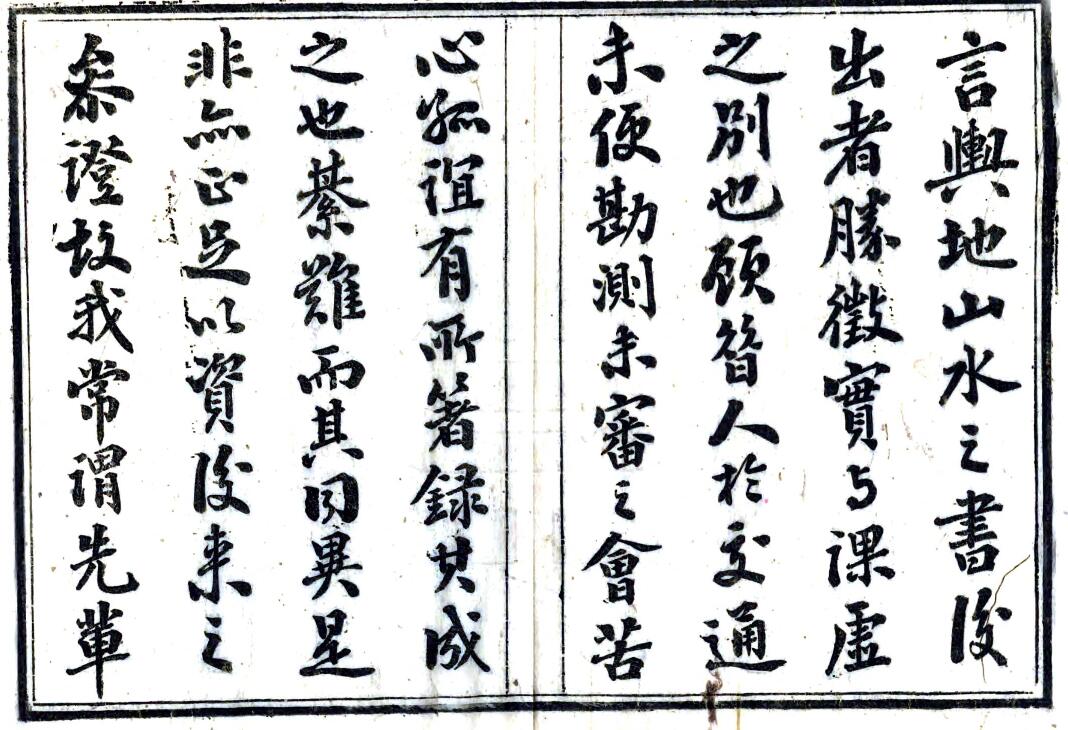 言輿地山水之書後
出者勝徵實与課虛
之別也顧昔人於交通
未便勘測未審之會苦
心孤誼有所箸録其成
之也綦難而其同異是
非亦正足以資後来之
叅證故我常謂先輩